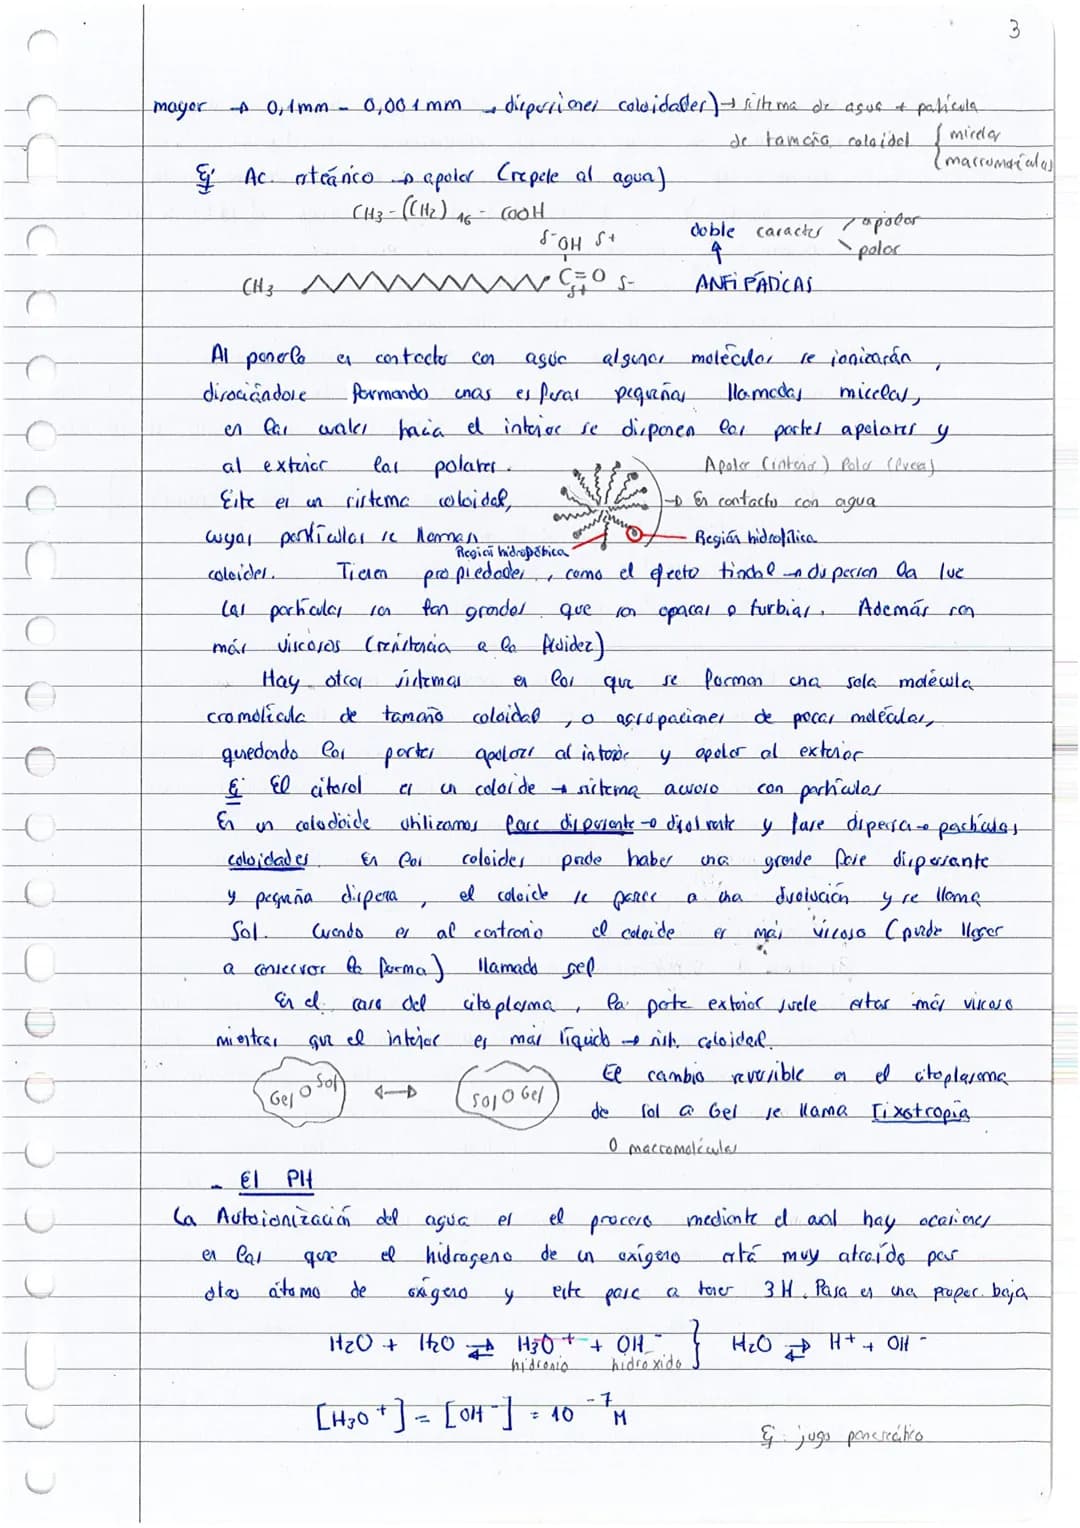 3
mayor → 0,1mm - 0,001mm → dispersiones coloidales) → sistema de agua + partícula
de tamaño coloidal { micelas
{ macromoléculas
Ej Ac. esteárico → apolar (repele al agua)
CH3-((H2)16 - COOH
δ- OH δ+
doble caracter apolar
polar
CH3 C=O δ-
δ+
ANFIPÁTICAS
Al ponerlo en contacto con agua algunas moléculas se ionizarán,
disociándose formando unas esferas pequeñas llamadas micelas,
en las cuales hacia el interior se disponen las partes apolares y
al exterior las polares.
Apolar (interior) Polar (fuera)
Este es un sistema coloidal,
→ En contacto con agua
cuyas partículas se llaman
Región hidrofílica
Región hidrofóbica
coloides. Tienen propiedades, como el efecto tindal → dispersan la luz
Las partículas son tan grandes que son opacas o turbias. Además son
más viscosos (resistencia a la fluidez)
Hay otros sistemas en los que se forman una sola molécula
cromolécula de tamaño coloidal, o agrupaciones de pocas moléculas,
quedando las partes apolares al interior y apolar al exterior
Ej El citosol es un coloide → sistema acuoso con partículas
En un colodoide utilizamos fase dispersante → disolvente y fase dispersa → partículas
coloidades. En los coloides puede haber una grande fase dispersante
y pequeña dispersa, el coloide se parece a una disolución y se llama
Sol. Cuando es al contrario el coloide es más viscoso (puede llegar
a conservar la forma) llamado gel
En el caso del citoplasma, la parte exterior suele estar más viscoso
mientras que el interior es más líquido → sist. coloidal.
Gel Sol ↔ Sol Gel
El cambio reversible en el citoplasma
de Sol a Gel se llama Tixotropía
O macromoléculas
- El PH
La Autoionización del agua es el proceso mediante el cual hay ocasiones
en las que el hidrogeno de un oxígeno está muy atraído por
otro átomo de oxígeno y este pasa a tener 3 H. Pasa en una proper. baja
H2O + H2O ⇄ H3O+ + OH- } H2O ⇄ H+ + OH-
hidronio hidroxido
[H3O+] = [OH-] = 10-7 M
Ej: jugo pancreático